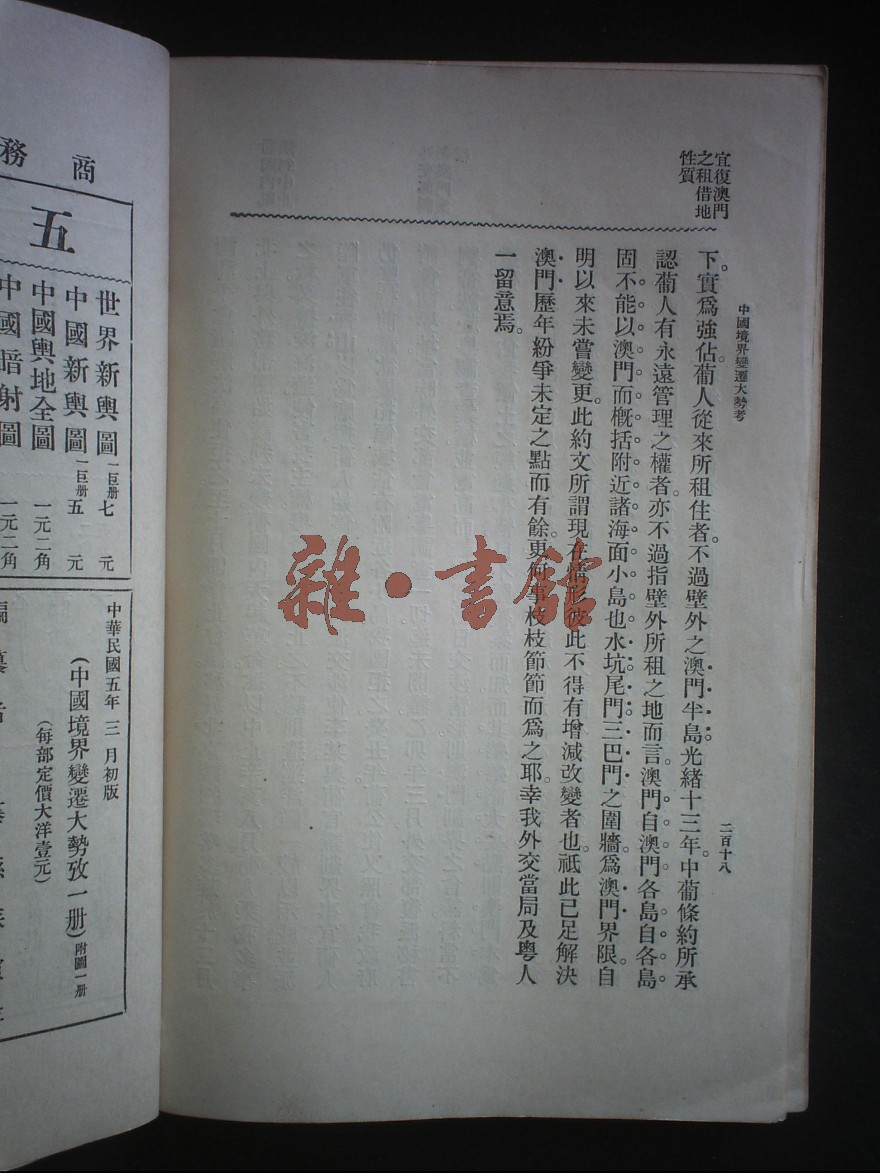 中國境界變遷大勢考
二百十八
宜復澳門
之租借地
性質
下。實爲強佔。葡人從來所租住者。不過壁外之澳門半島。光緒十三年。中葡條約所承
認葡人有永遠管理之權者。亦不過指壁外所租之地而言。澳門自澳門。各島自各島。
固不能以澳門而概括附近諸海面小島也。水坑尾門三巴門之圍牆。爲澳門界限。自
明以來未嘗變更。此約文所謂現在情形彼此不得有增減改變者也。祇此已足解決
澳門歷年紛爭未定之點而有餘。更何事枝枝節節而爲之耶。幸我外交當局及粵人
一留意焉。
雜·書館
商務
五
世界新輿圖 一巨册 七元
中國新輿圖 一巨册 五元
中國輿地全圖 一元二角
中國暗射圖 一元二角
中華民國五年三月初版
(中國境界變遷大勢攷一册) 附圖一册
(每部定價大洋壹元)